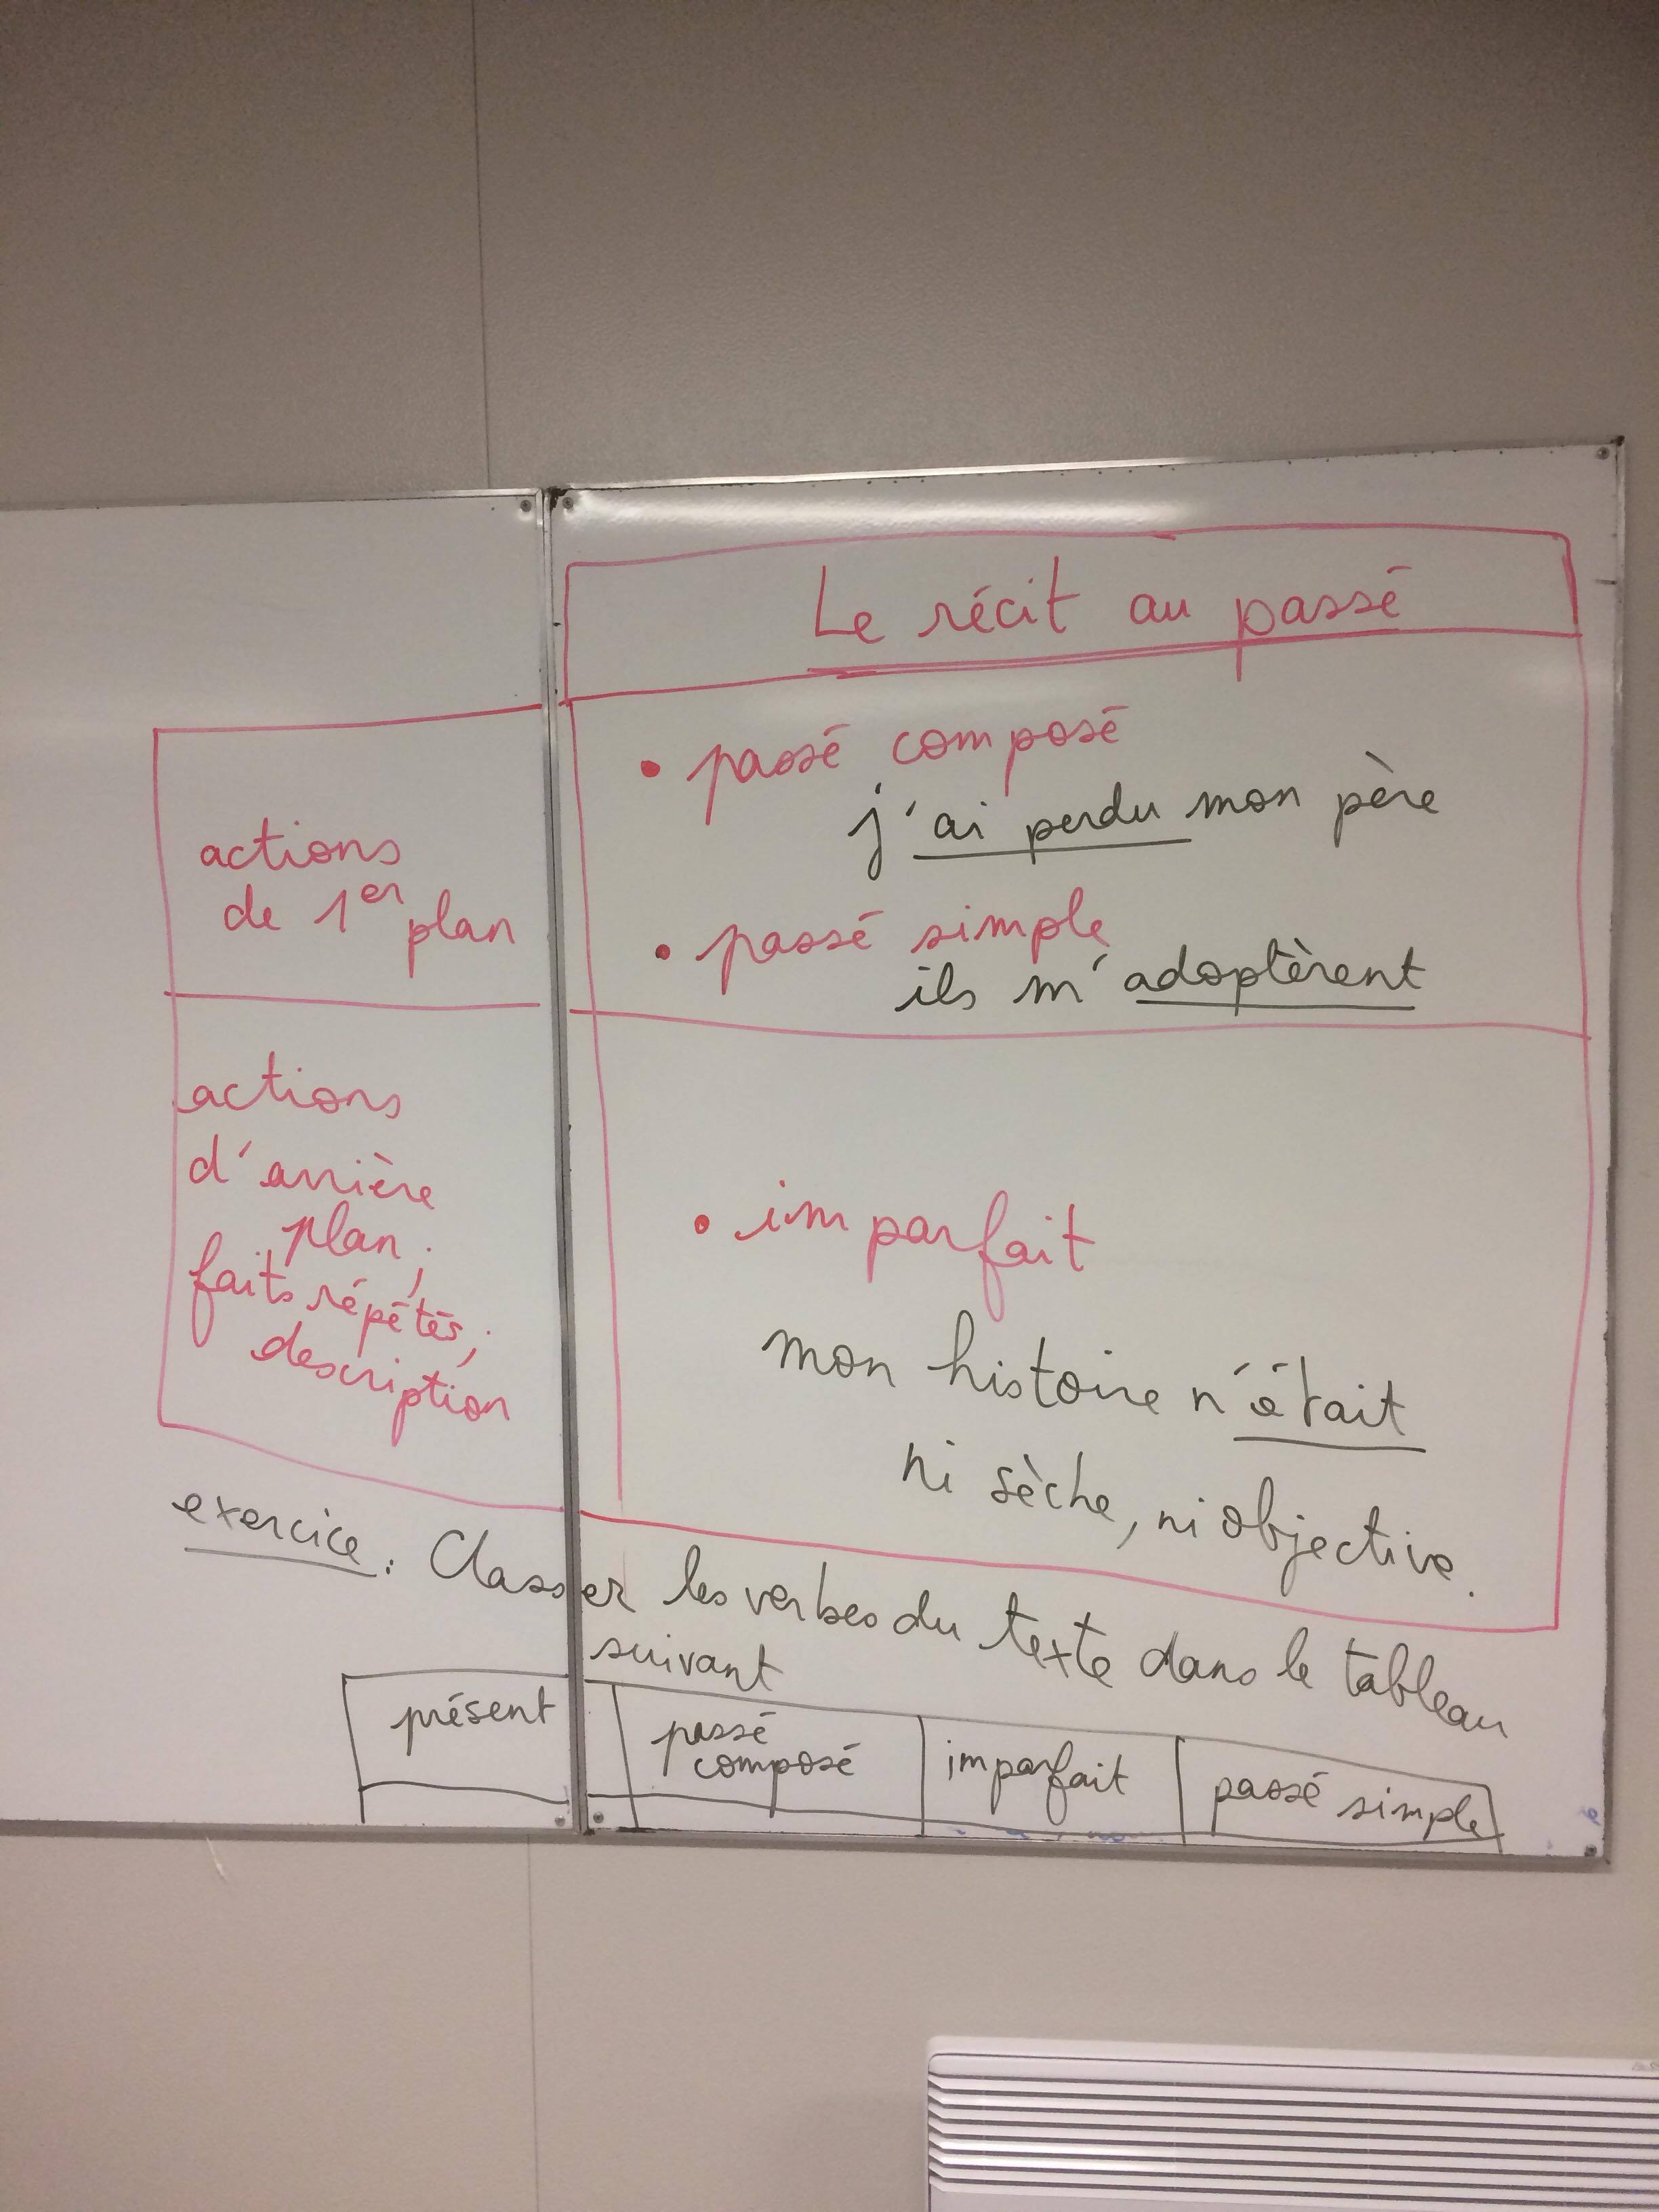 Le récit au passé
actions
de 1er plan
• passé composé
j'ai perdu mon père
• passé simple
ils m'adoptèrent
actions
d'arrière
plan;
faits répétés;
description
• imparfait
mon histoire n'était
ni sèche, ni objective.
exercice : Classer les verbes du texte dans le tableau
suivant
présent
passé
composé
imparfait
passé simple